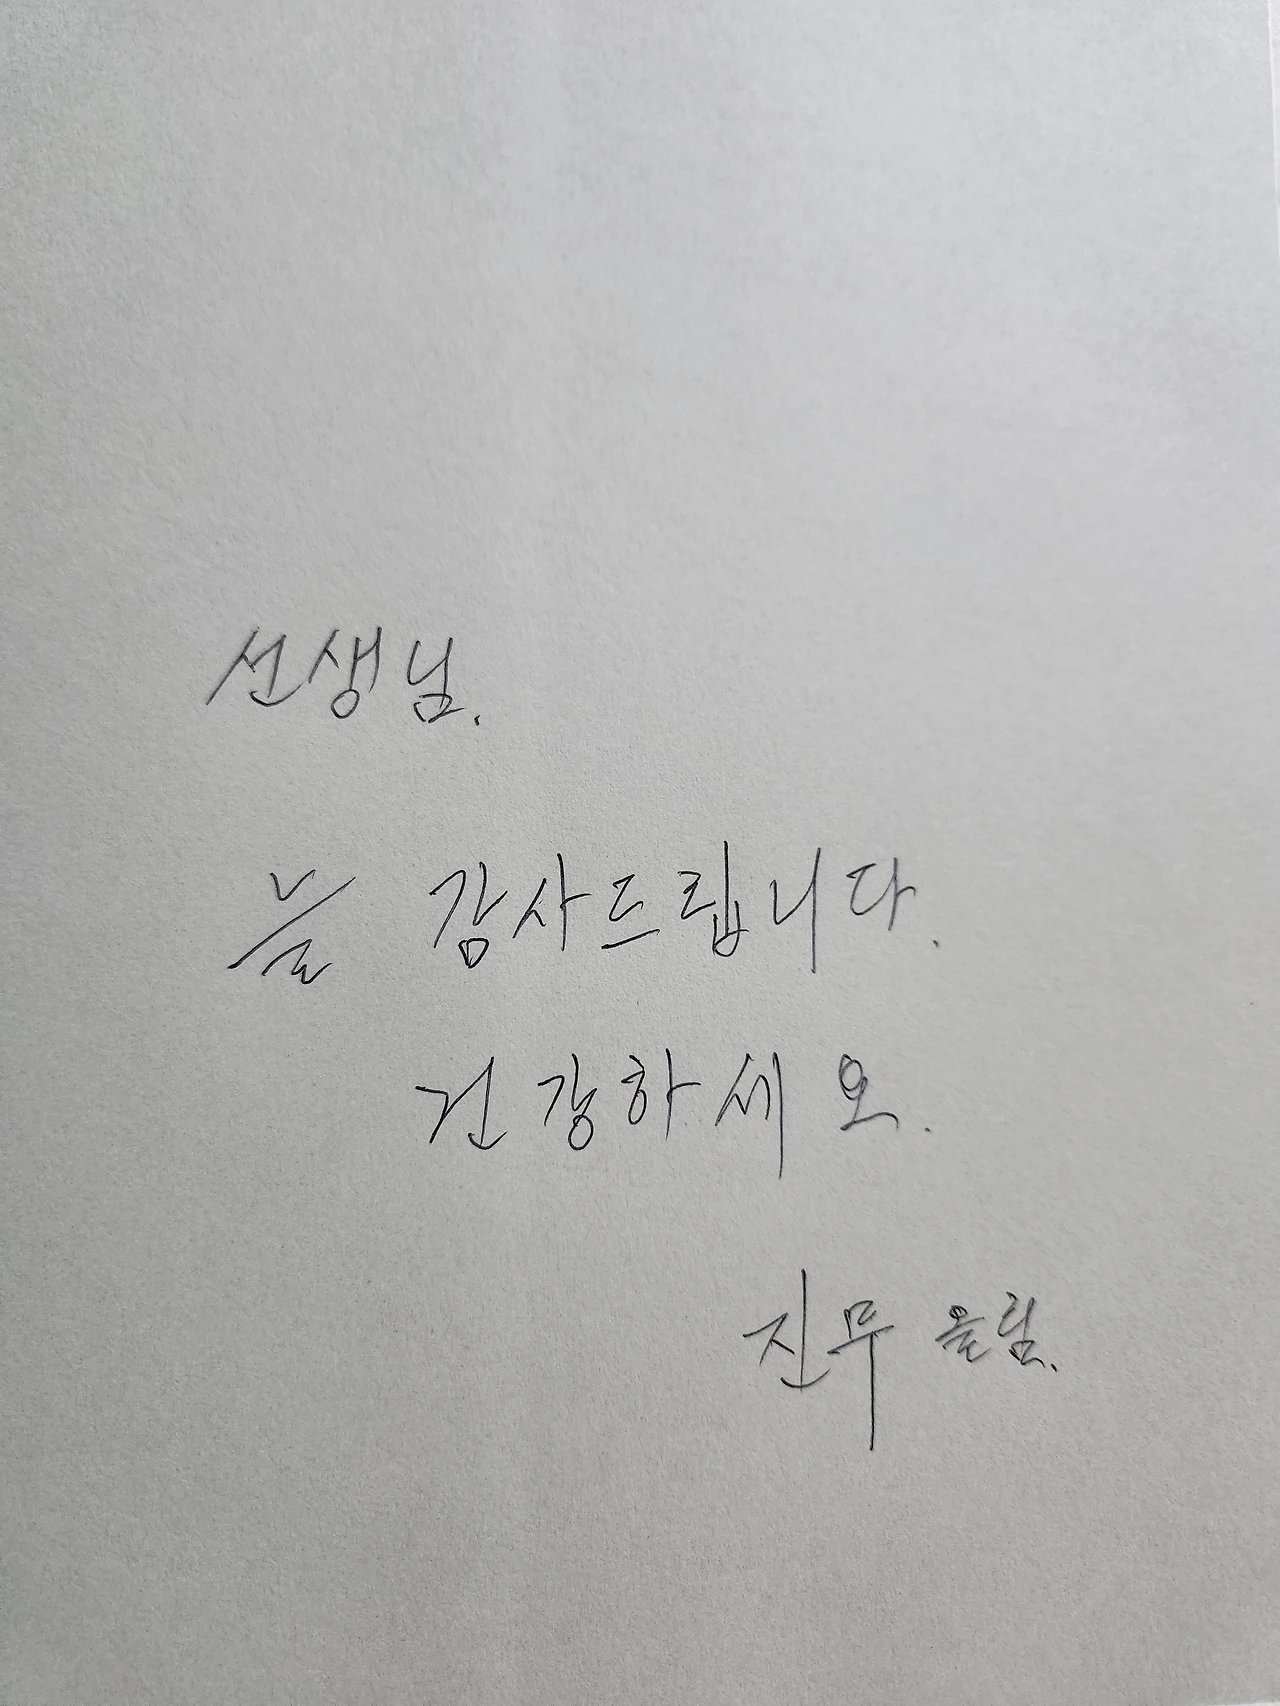 선생님.
늘 감사드립니다.
건강하세요.
진무 올림.